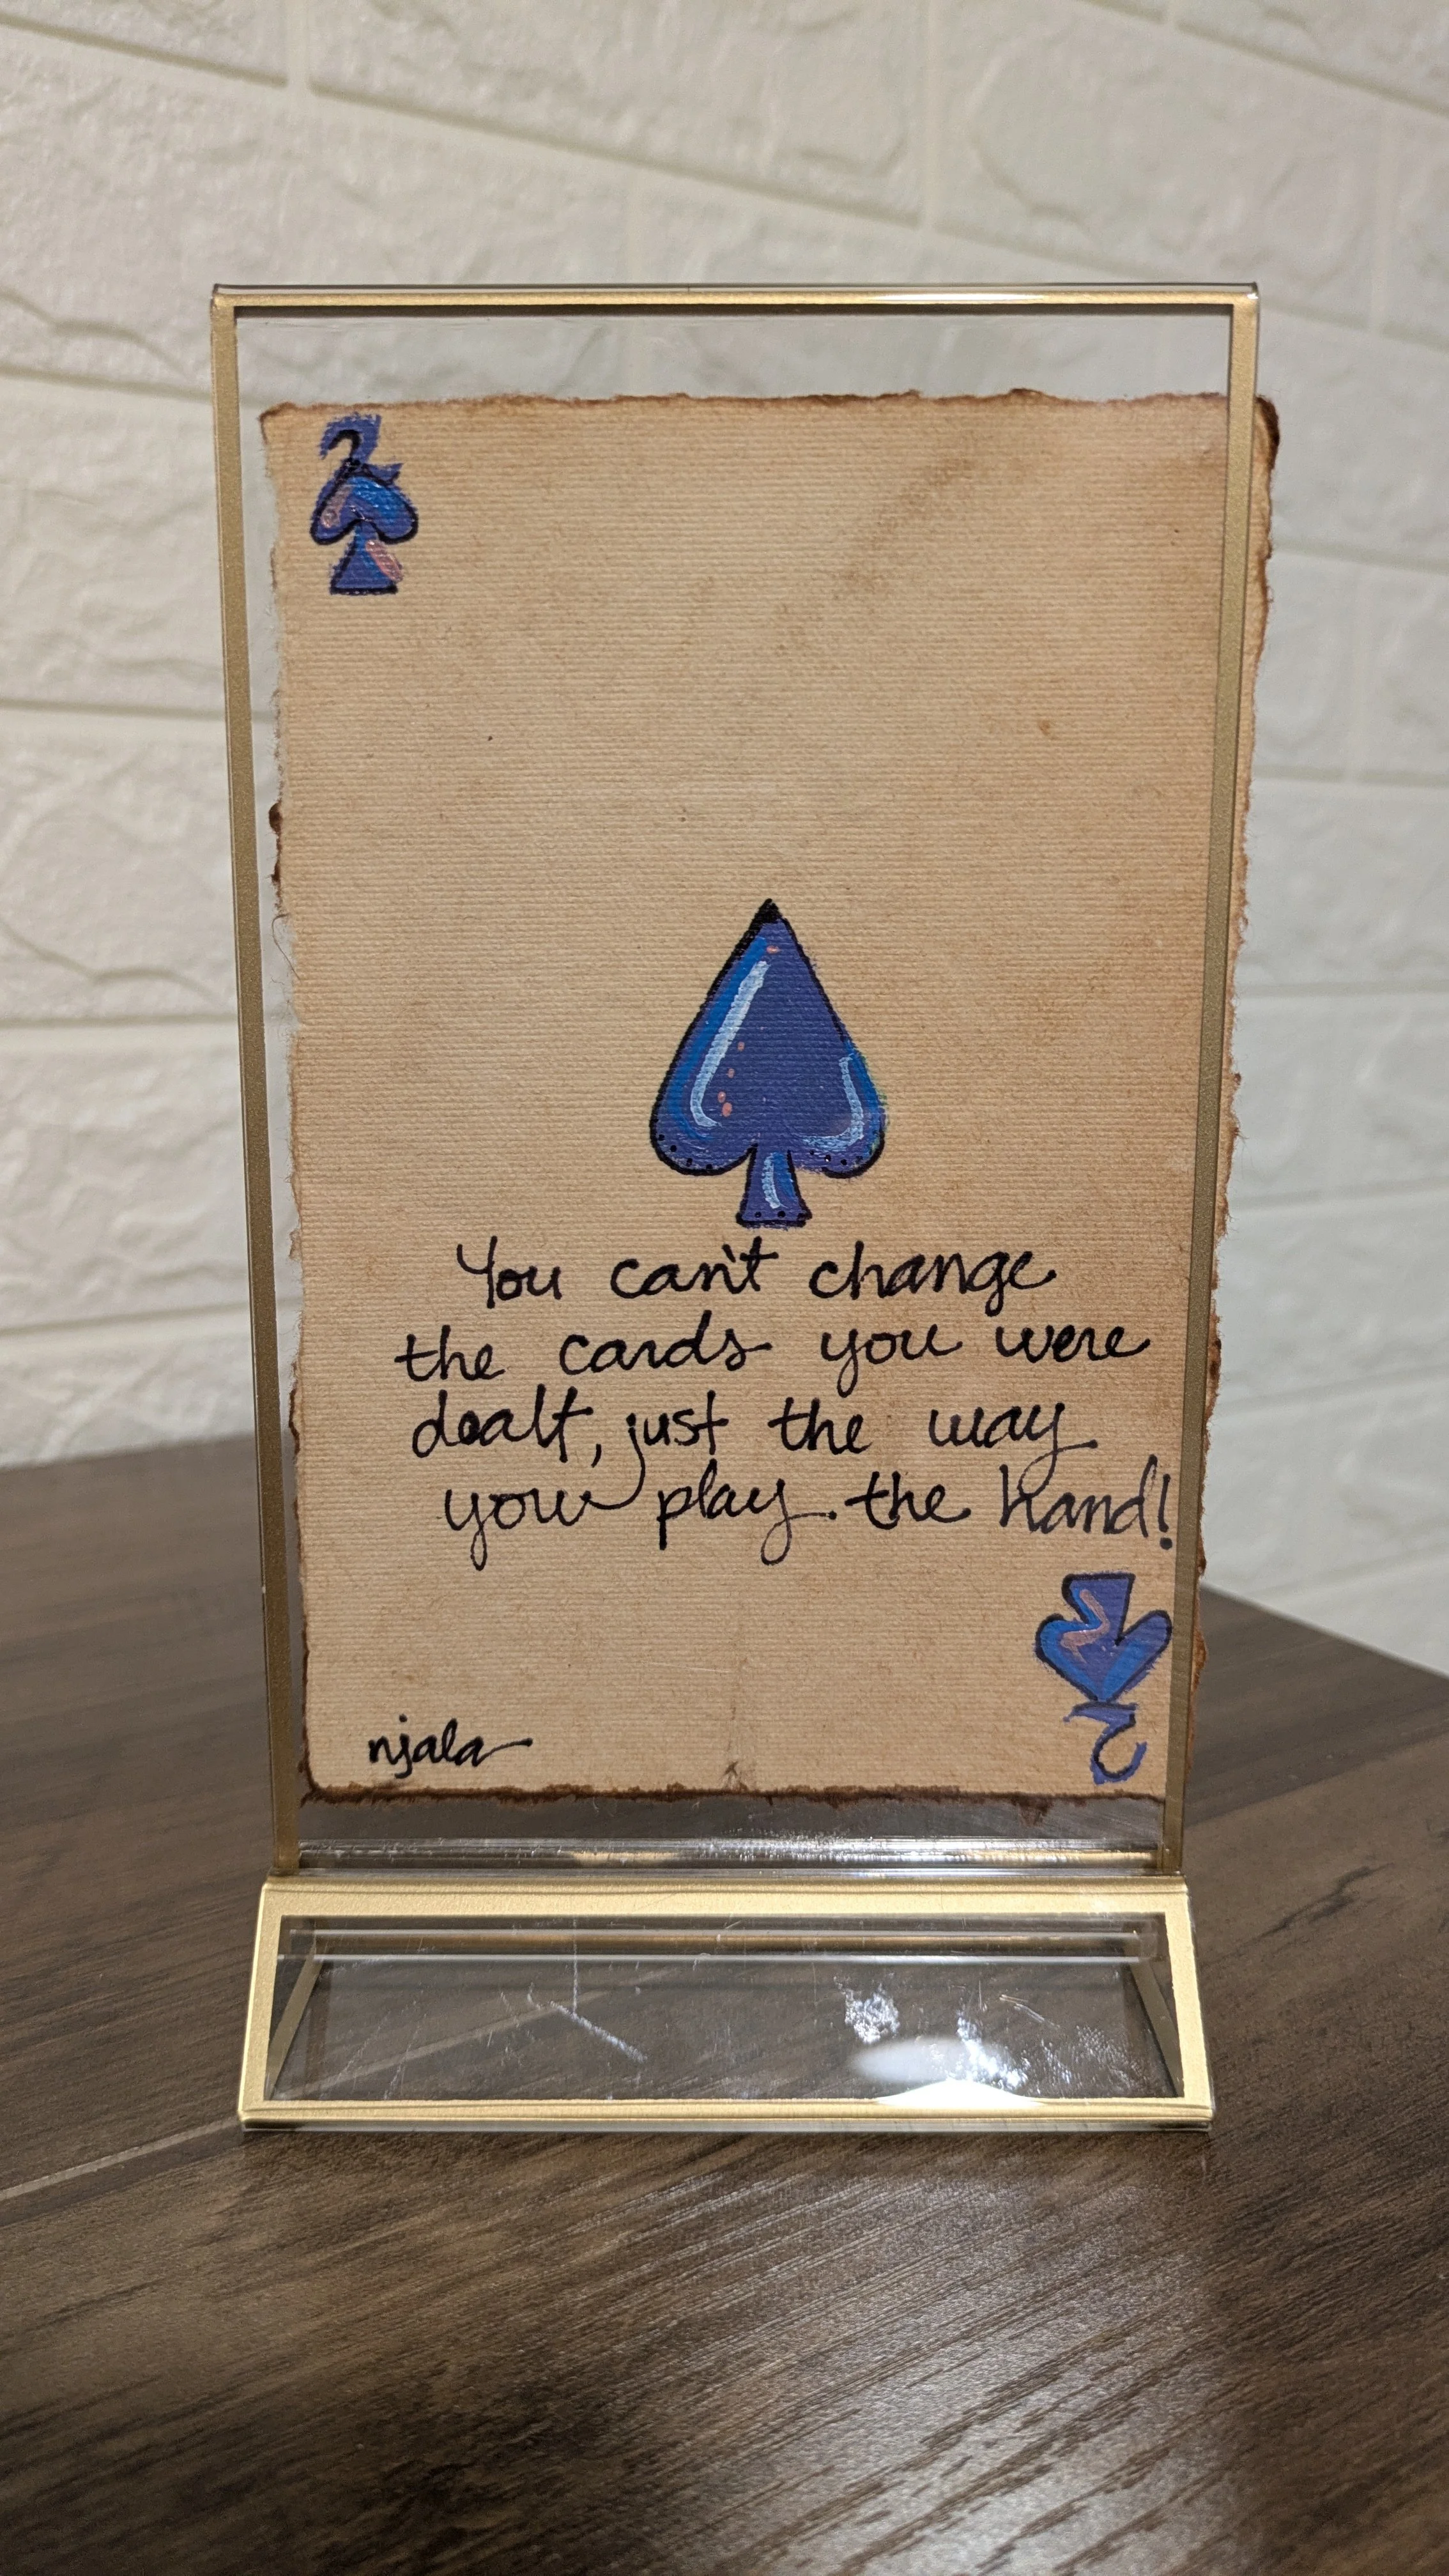 2
You can't change
the cards you were
dealt, just the way
you play the hand!
njala
2